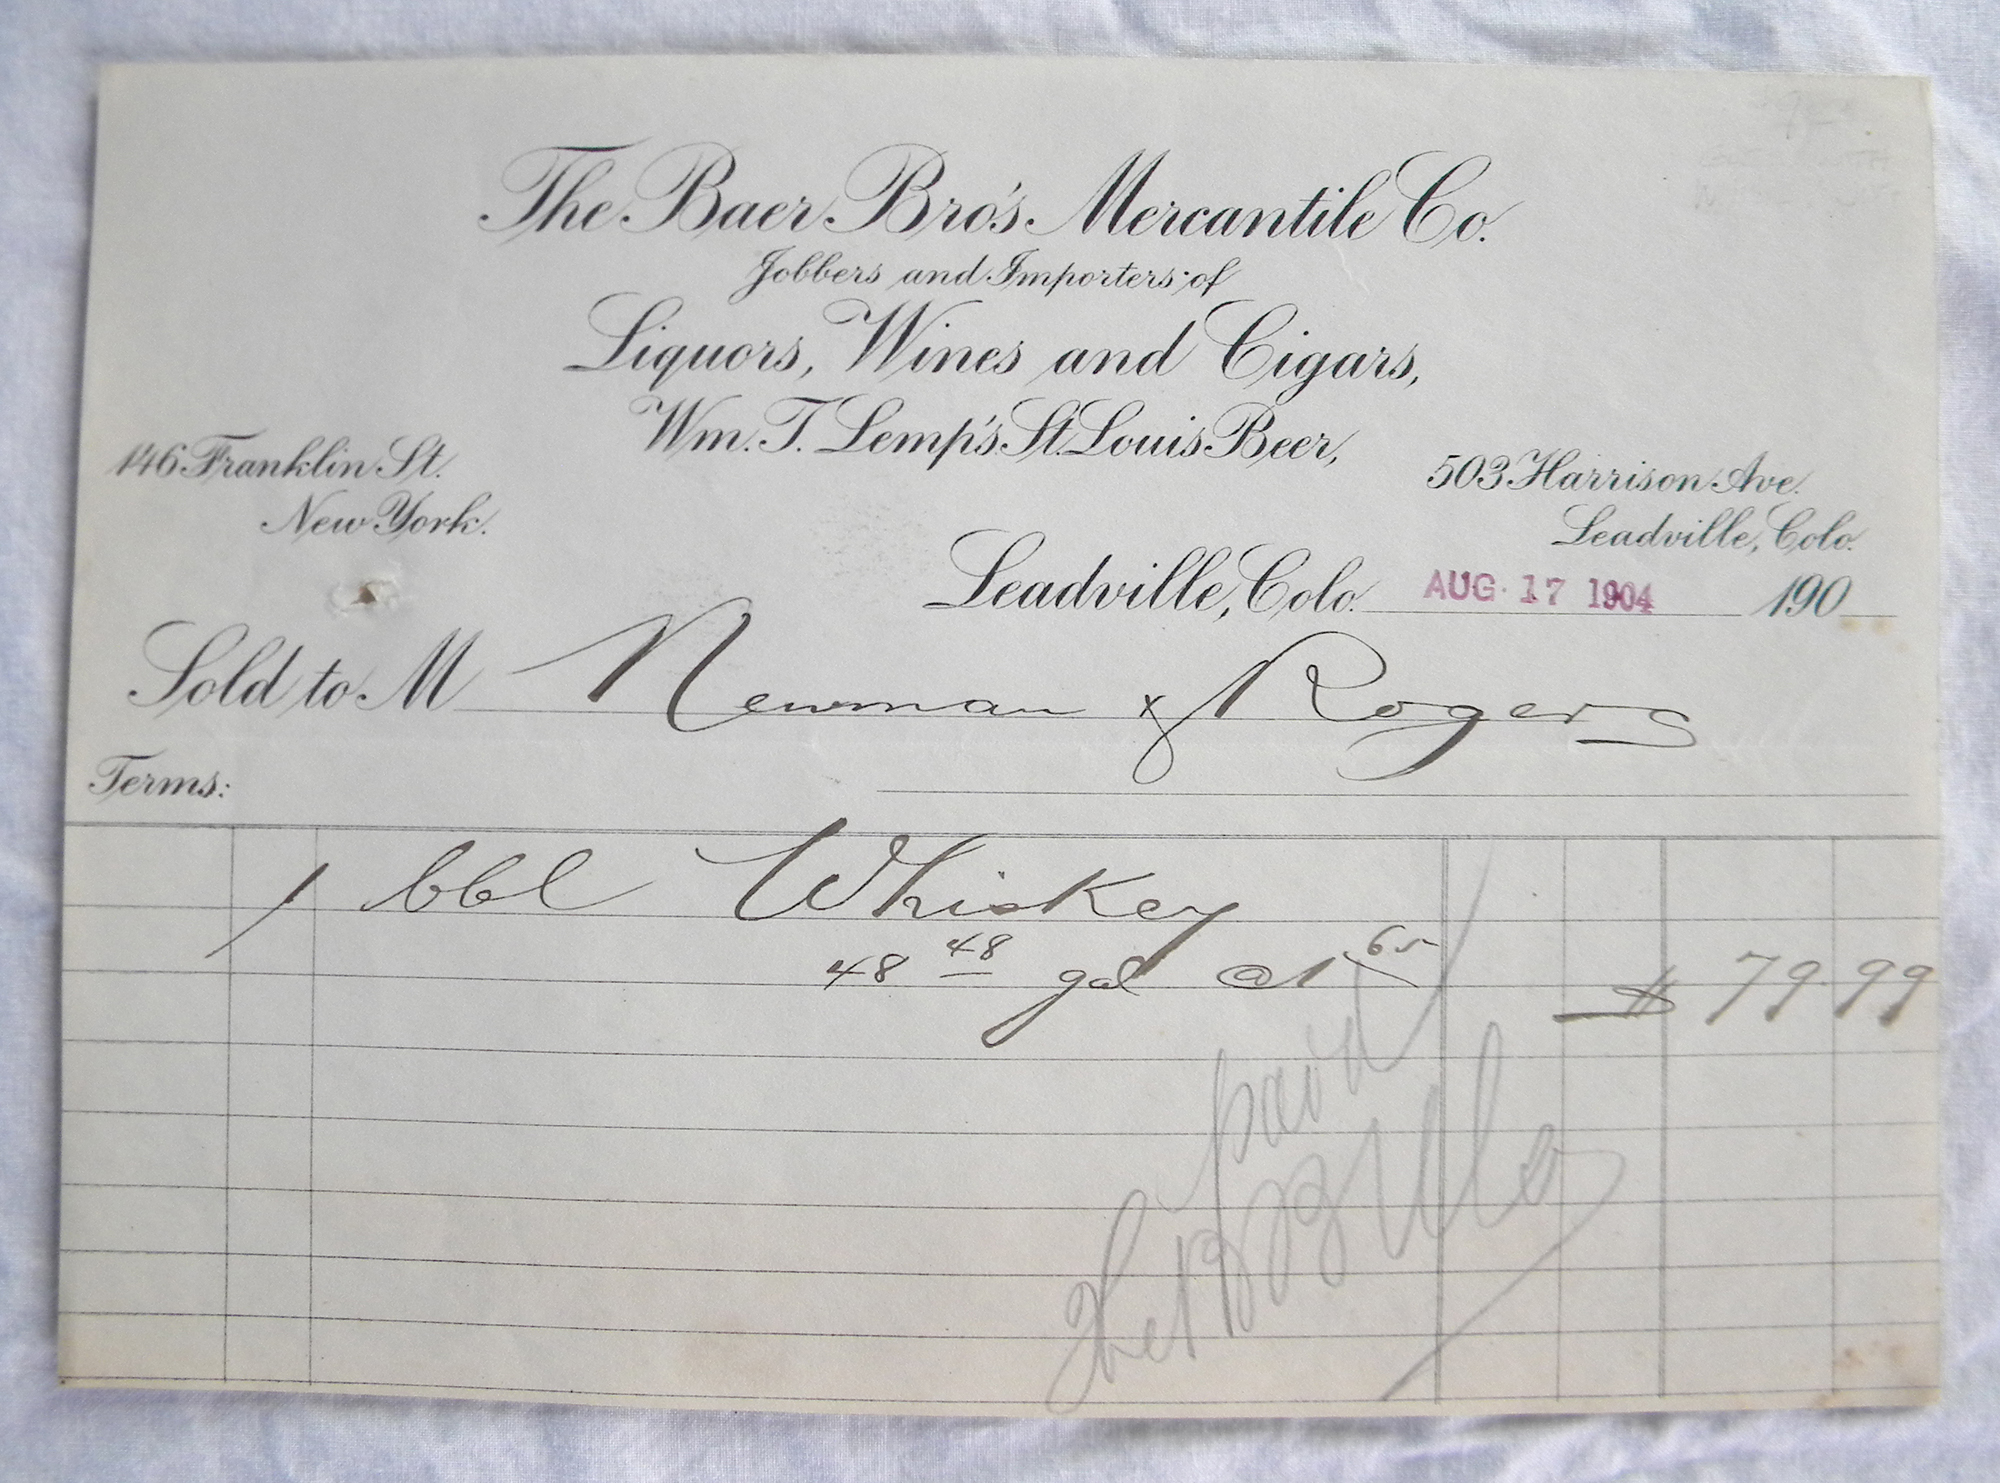 The Baer Bro's. Mercantile Co.
Jobbers and Importers of
Liquors, Wines and Cigars,
Wm. T. Lemp's St. Louis Beer,
146 Franklin St.
New York.
503 Harrison Ave.
Leadville, Colo.
Leadville, Colo. AUG. 17 1904 190
Sold to M Newman & Rogers
Terms:
1 bbl Whiskey
48 48 gal @ 1 65 $ 79.99
paid